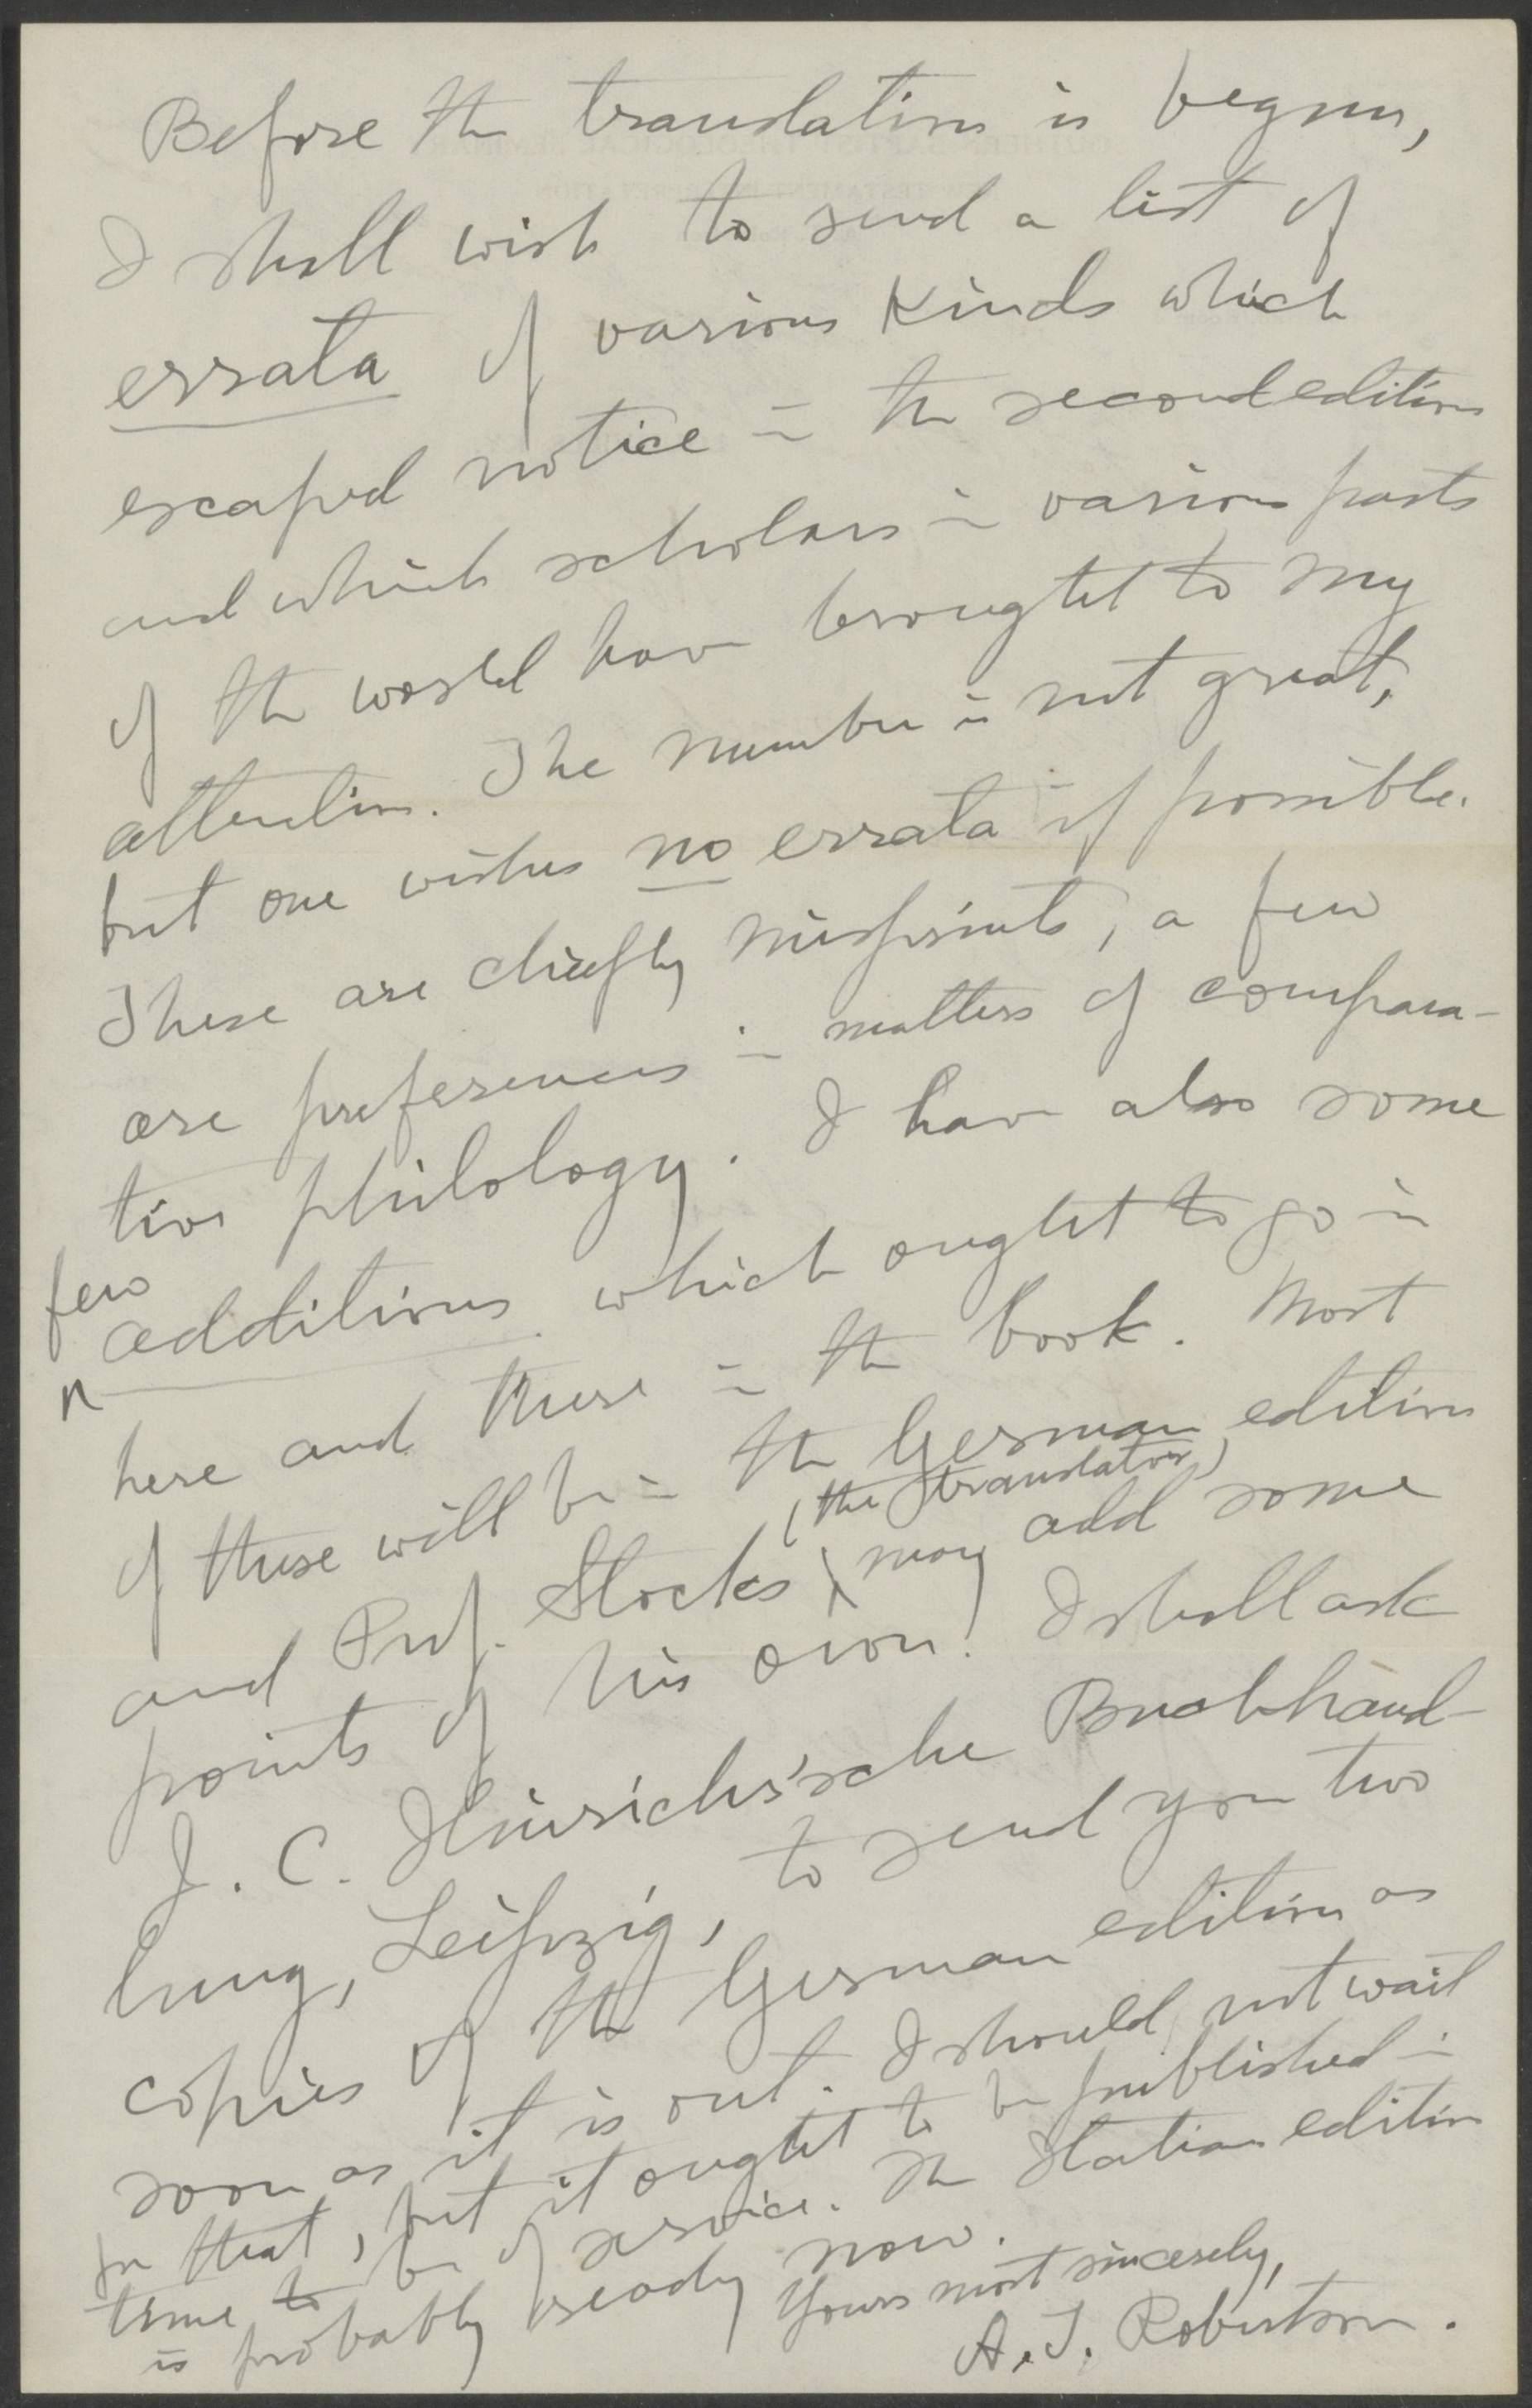 Before the translation is begun,
I shall wish to send a list of
errata of various kinds which
escaped notice in the second edition
and which scholars in various parts
of the world have brought to my
attention. The number is not great,
but one wishes no errata if possible.
These are chiefly misprints, a few
are preferences in matters of compara-
tive philology. I have also some
few
additions which ought to go in
here and there in the book. Most
of these will be in the German edition
(the translator)
and Prof. Stocks may add some
points of his own! I shall ask
J. C. Hinrichs'sche Buchhand-
lung, Leipzig, to send you two
copies of the German edition as
soon as it is out. I should not wait
for that, but it ought to be published in
time to be of service. The Italian edition
is probably ready now.
Yours most sincerely,
A. T. Robertson.